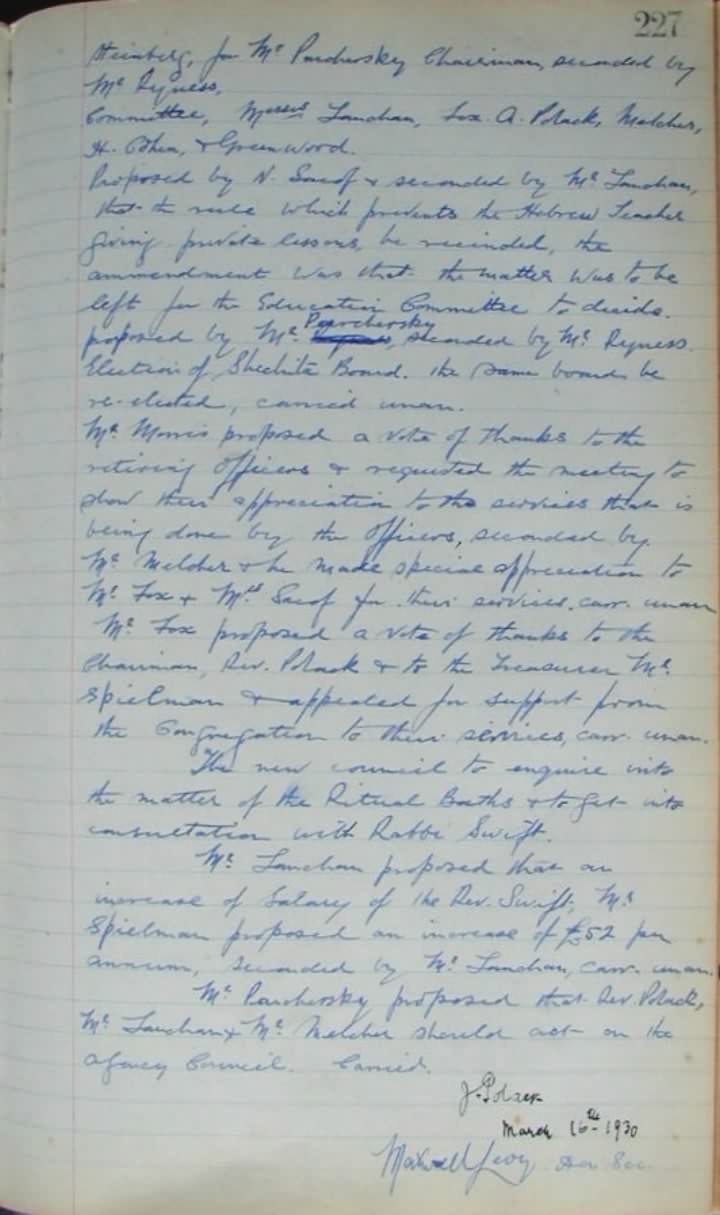 227
Steinberg, for Mr Parchersky Chairman, seconded by
Mr Ryness,
Committee, Messrs Lanchan, Fox. A. Polack, Melcher,
H. Cohen, & Greenwood.
Proposed by N. Sacof & seconded by Mr Lanchan,
that the rule which prevents the Hebrew Teacher
giving private lessons, be recinded, the
ammendment was that the matter was to be
left for the Education Committee to decide.
proposed by Mr. Parchersky, seconded by Mr. Ryness.
Election of Shechita Board. the same board be
re-elected, carried unan.
Mr. Morris proposed a vote of thanks to the
retiring Officers & requested the meeting to
show their appreciation to the services that is
being done by the Officers, seconded by
Mr Melcher & he made special appreciation to
Mr. Fox & Mrs Sacof for their services, carr. unan
Mr. Fox proposed a vote of thanks to the
Chairman, Rev. Polack & to the Treasurer Mr.
Spielman & appealed for support from
the Congregation to their services, carr. unan.
The new council to enquire into
the matter of the Ritual Baths & to get into
consultation with Rabbi Swift.
Mr. Lanchan proposed that an
increase of Salary of the Rev. Swift, Mr
Spielman proposed an increase of £52 per
annum, seconded by Mr. Lanchan, carr. unan.
Mr Parchersky proposed that Rev. Polack,
Mr Lanchan & Mr. Melcher should act on the
Council. Carried.
J. Polack
March 16th 1930
Maxwell Levy Hon Sec.